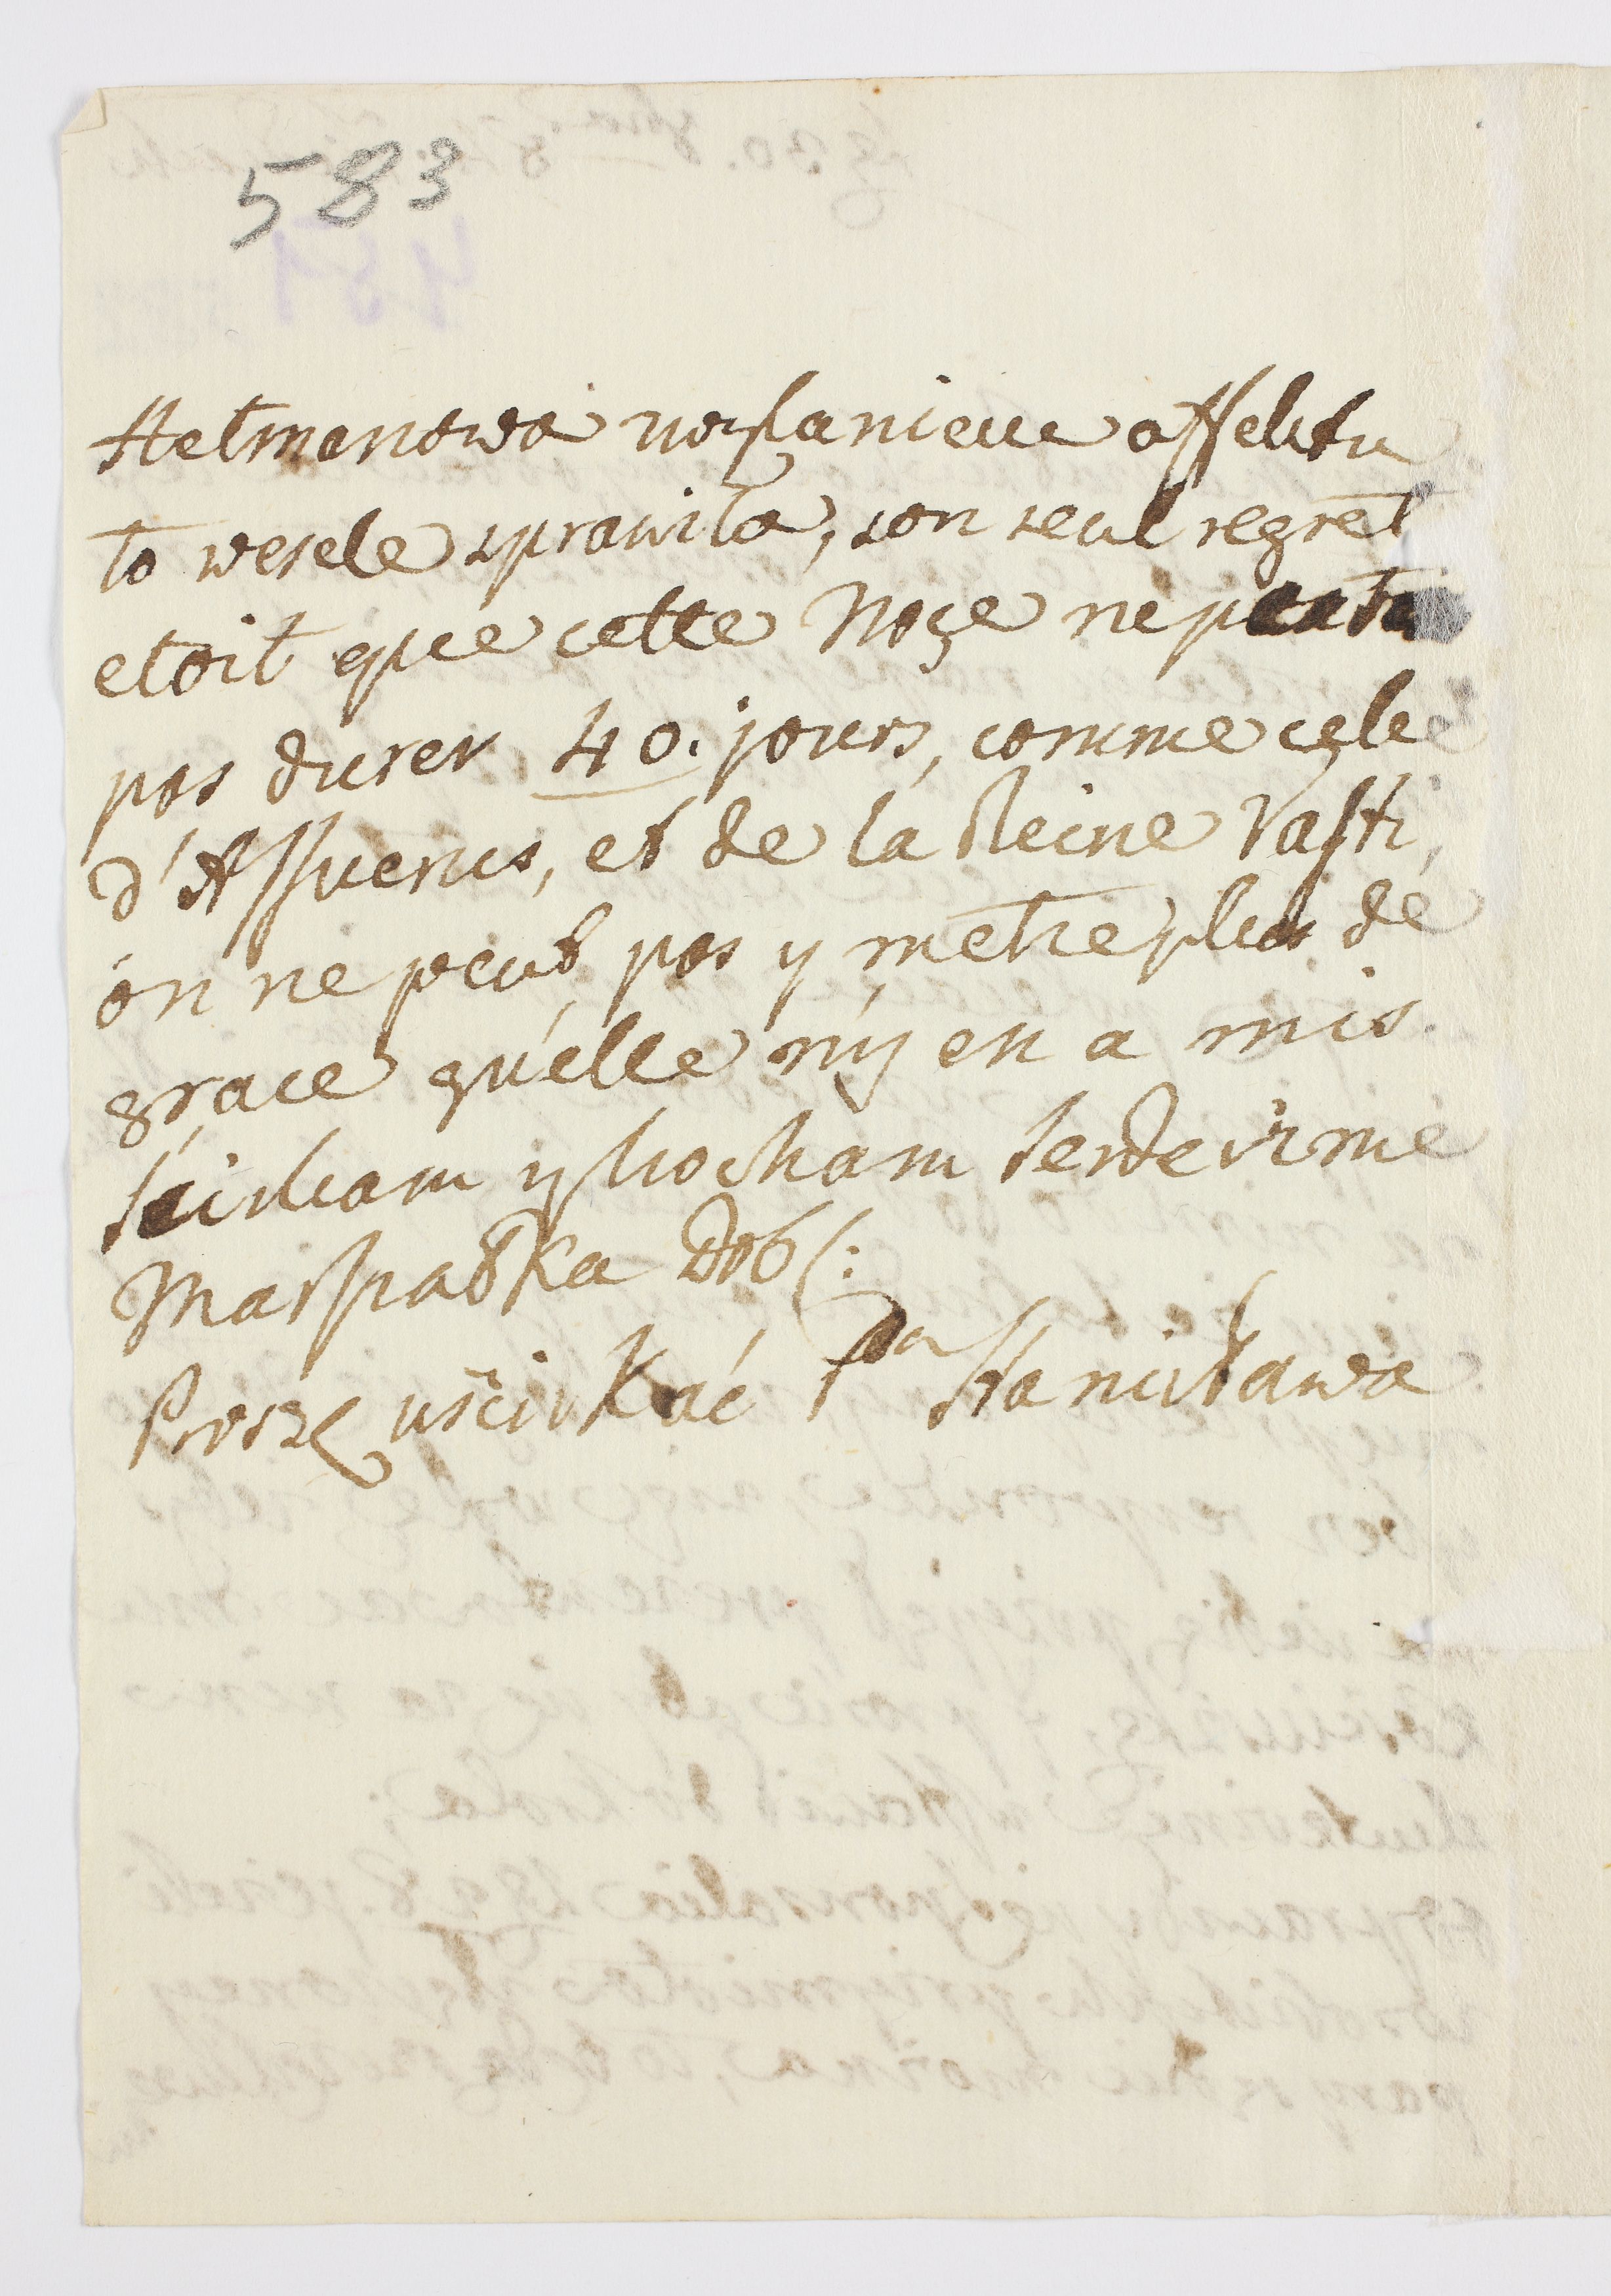 583
Hetmanowa
to wesele sprawiła, son seul regret
etoit que cette Noçe ne
pas durer 40. jours, comme cele
d'Assuerus, et de la Reine Vasti,
on ne peut pas y metre plus de
grace qu'elle n'y en a mis
sciskam y kocham serdecznie
Marszałka Dob:
Proszę uściskać Pa Stanisława